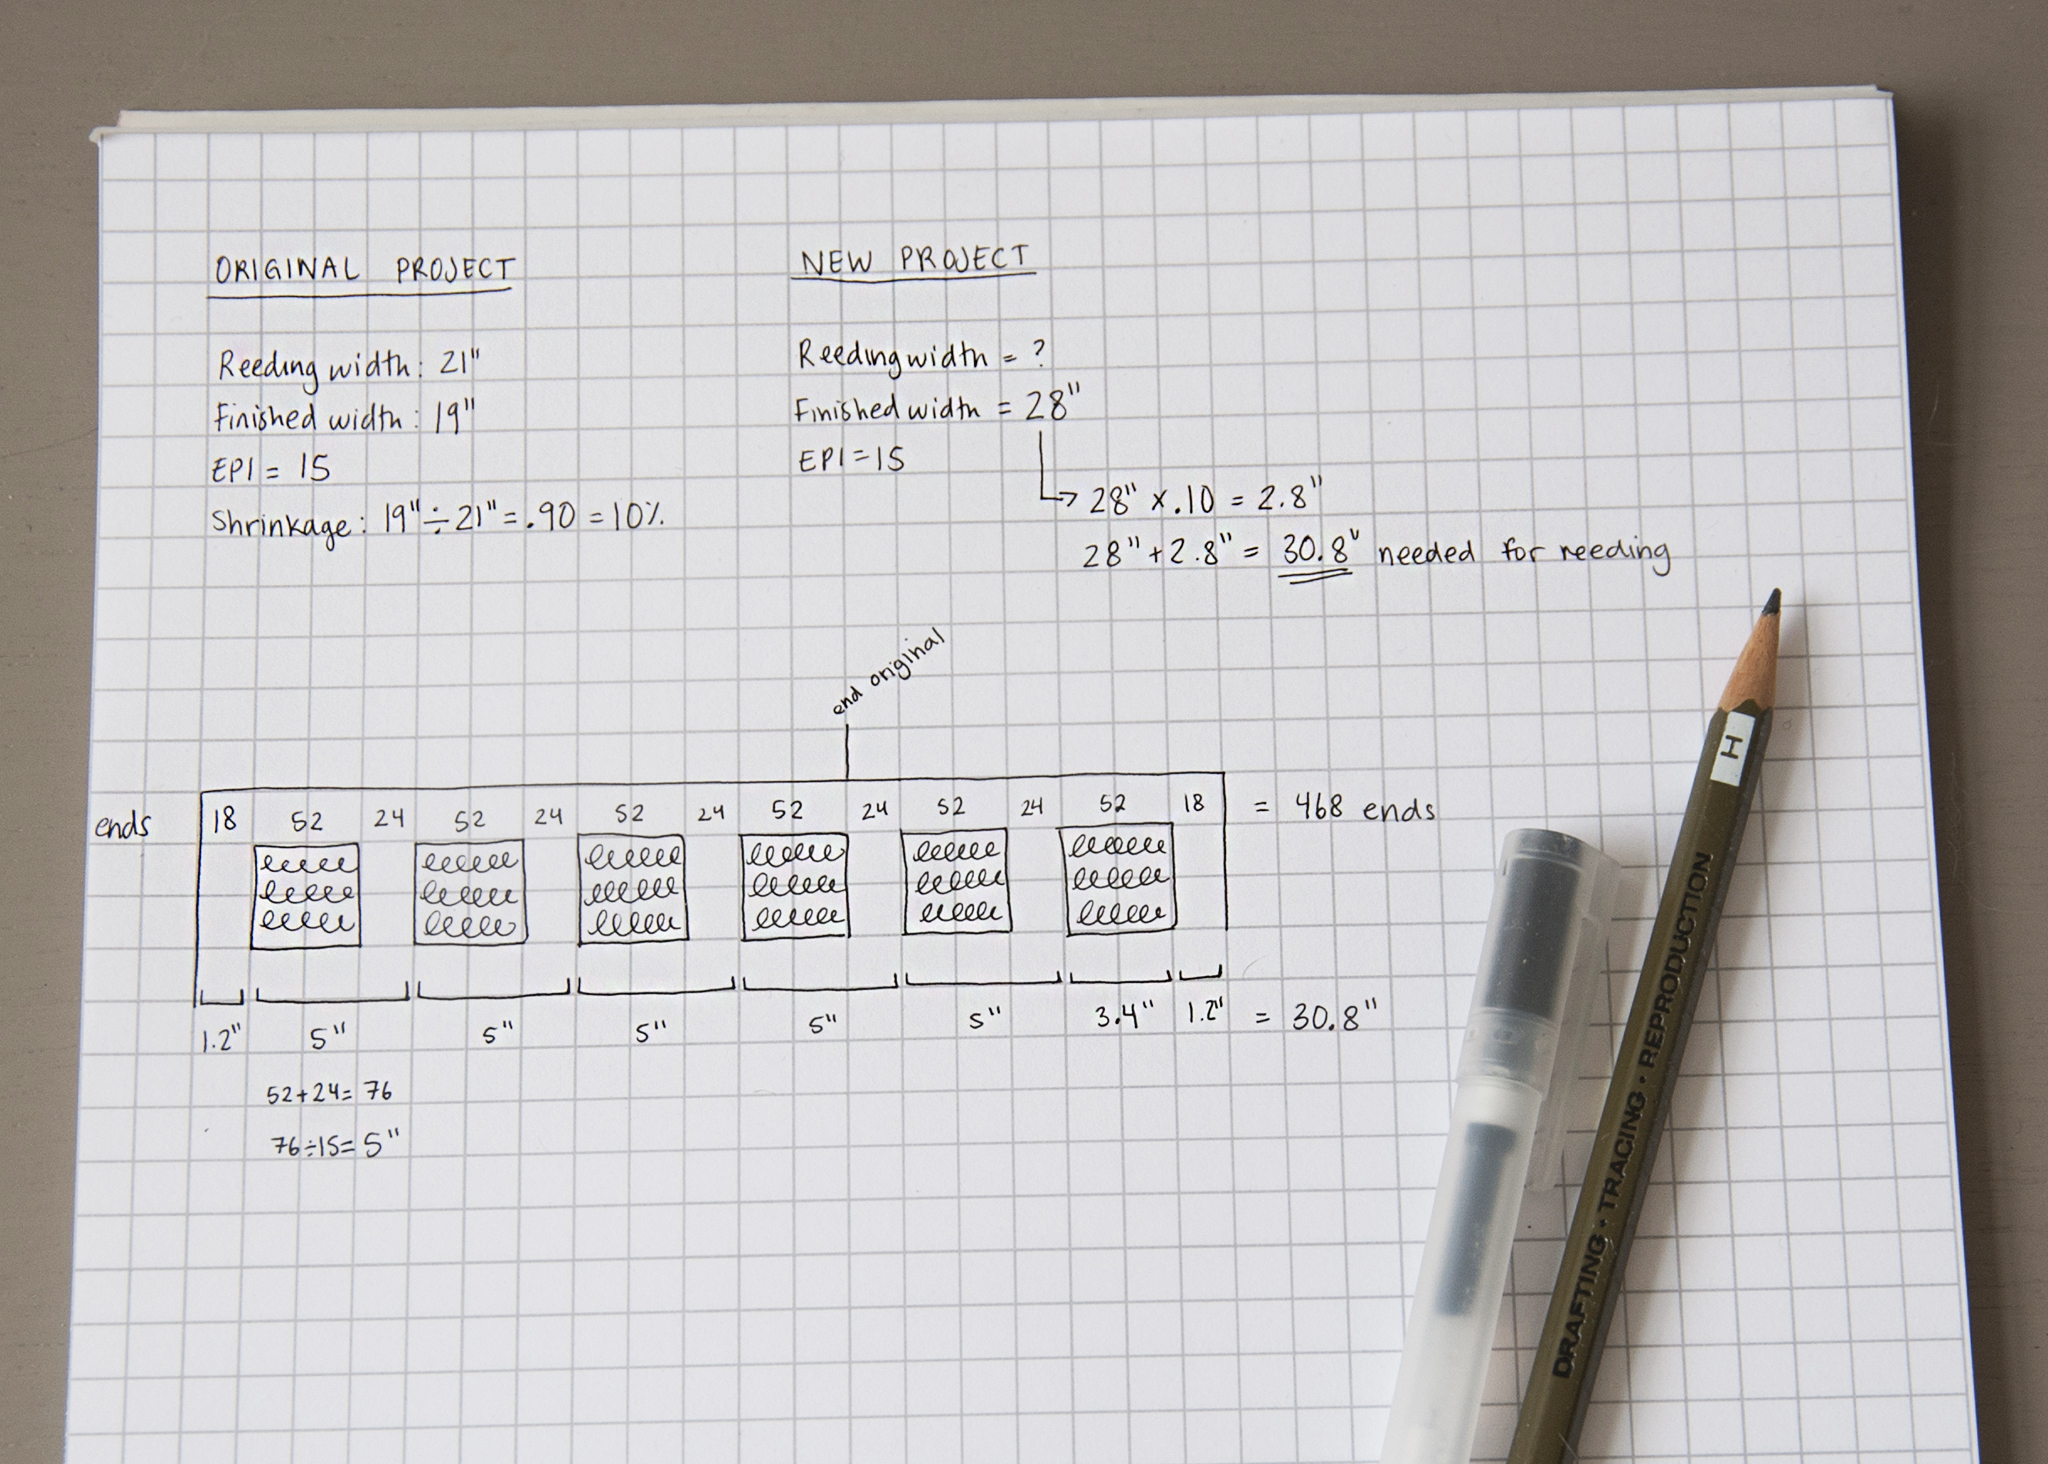 ORIGINAL PROJECT
Reeding width: 21"
Finished width: 19"
EPI = 15
Shrinkage: 19" ÷ 21" = .90 = 10%
NEW PROJECT
Reeding width = ?
Finished width = 28"
EPI = 15
28" x .10 = 2.8"
28" + 2.8" = 30.8" needed for reeding
end original
ends 18 52 24 52 24 52 24 52 24 52 24 52 18 = 468 ends
1.2" 5" 5" 5" 5" 5" 3.4" 1.2" = 30.8"
52+24= 76
76÷15= 5"
H
DRAFTING · TRACING · REPRODUCTION